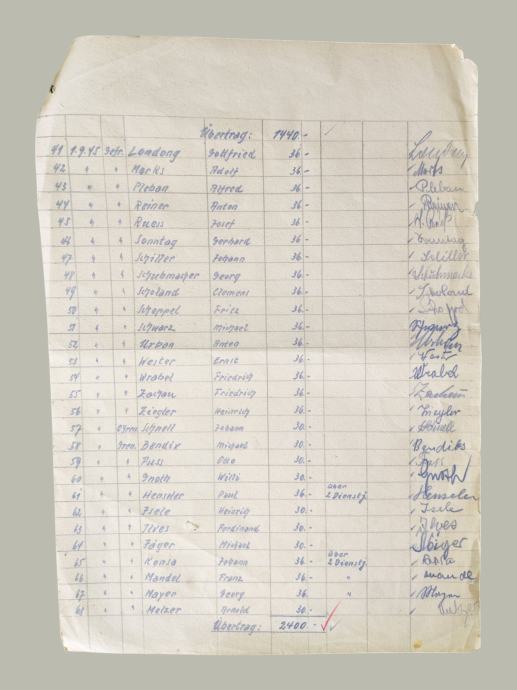 Übertrag: 1440.-
41 1.9.45 Gefr. Londong Gottfried 36.-
42 " " Marks Adolf 36.- Marks
43 " " Pleban Alfred 36.- Pleban
44 " " Reiner Anton 36.-
45 " " Ruess Josef 36.-
46 " " Sonntag Gerhard 36.- Sonntag
47 " " Schiller Johann 36.- Schiller
48 " " Schuhmacher Georg 36.-
49 " " Clemens 36.-
50 " " Schoppel Fritz 36.-
51 " " Schwarz Michael 36.-
52 " " Urban Anton 36.- Urban
53 " " Wester Ernst 36.-
54 " " Wrobel Friedrich 36.- Wrobel
55 " " Zachau Friedrich 36.-
56 " " Ziegler Heinrich 36.- Ziegler
57 " Schnell Johann 30.- Schnell
58 " Gren. Bendix Michael 30.- Bendiks
59 " " Fuss Otto 30.- Fuss
60 " " Gnoth Willi 30.- Gnoth
61 " " Henseler Paul 36.- über 2 Dienstj. Henseler
62 " " Isele Heinrich 30.- Isele
63 " " Ilves Ferdinand 30.- Ilves
64 " " Jäger Michael 30.- Jäger
65 " " Johann 36.- über 2 Dienstj.
66 " " Mandel Franz 36.- " Mandel
67 " " Mayer Georg 36.- " Mayer
68 " " Melzer Arnold 30.-
Übertrag: 2400.-